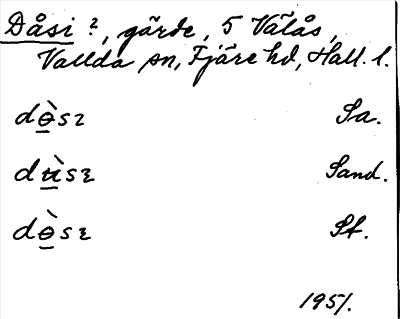 Dåsi ?, gärde, 5 Välås,
Vallda sn, Fjäre hd, Hall. l.
dɵ̀sɩ Sa.
dɩ̀sɩ Sand.
dɵ̀sɩ St.
1951.